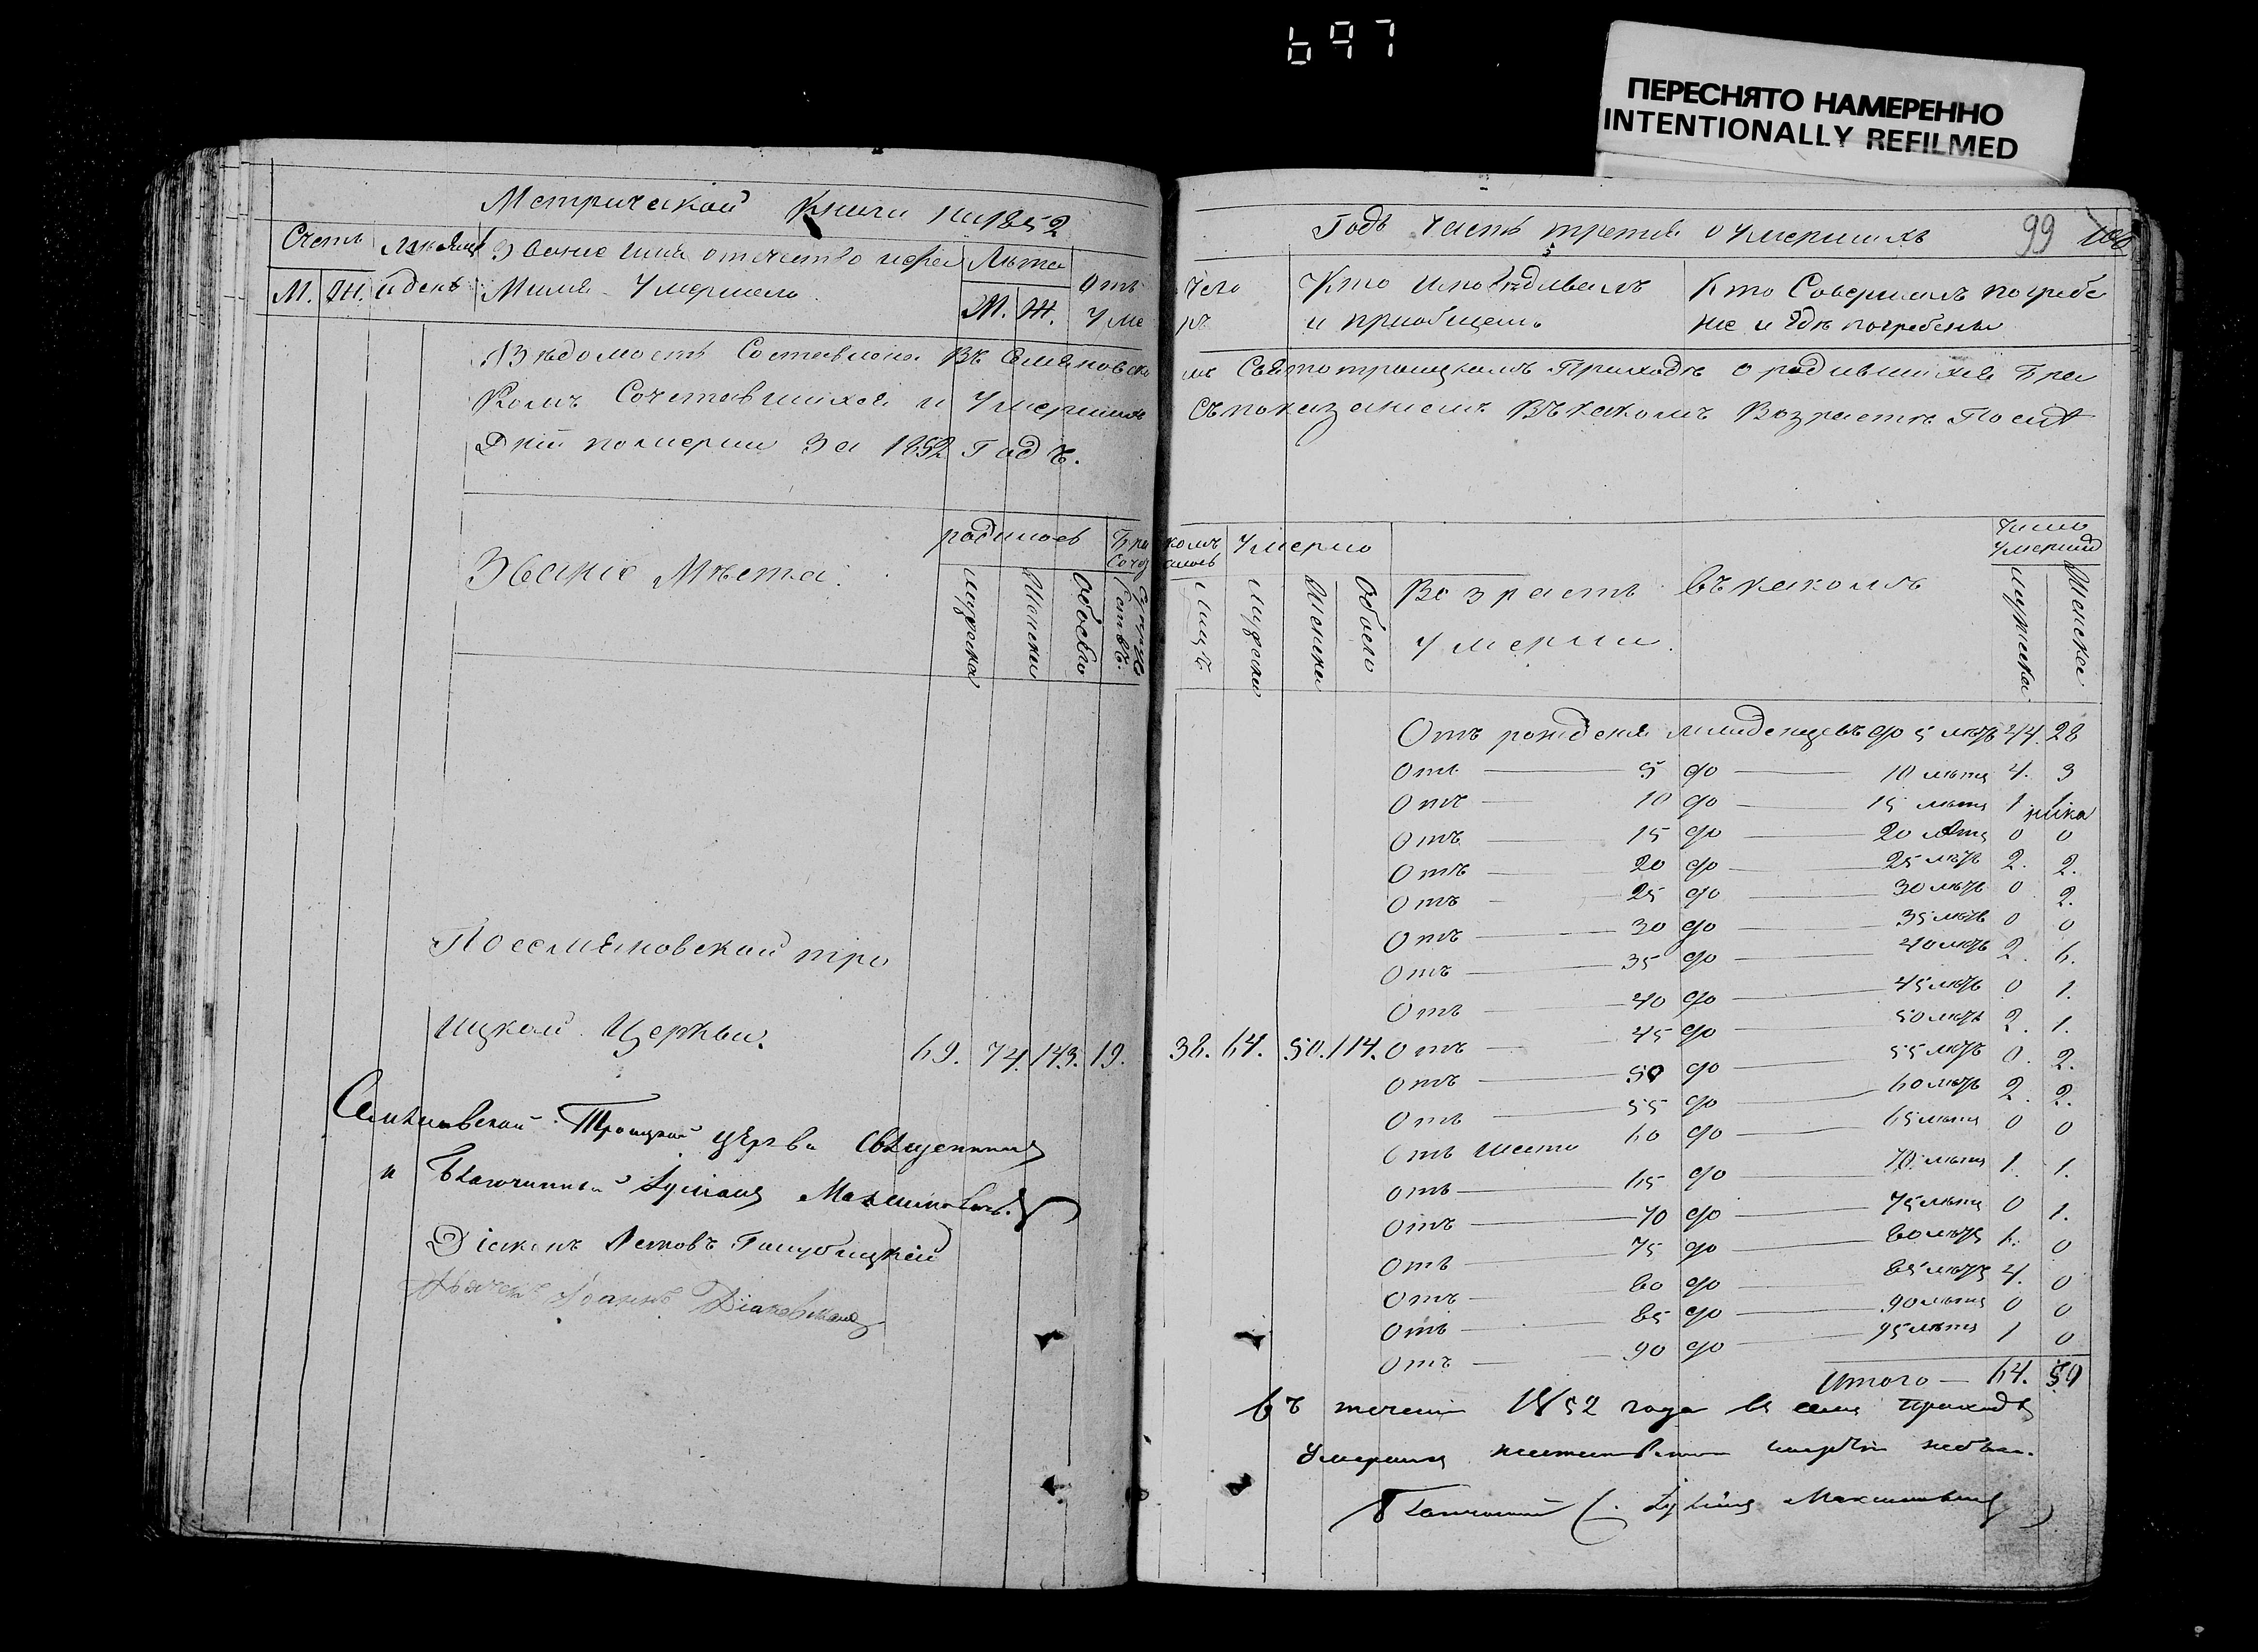 697
ПЕРЕСНЯТО НАМЕРЕННО
INTENTIONALLY REFILMED
Метрической Книги на 1852
Счетъ
М. Ж.
и день
Звание имя отчество
Умершаго
Лѣта
М. Ж.
Отъ
Уме
Вѣдомость Составлена Въ Семяновско
комъ Сочетавшихся и Умершихъ
Дній померли За 1852 Годъ.
Званіе Мѣста.
родилось
Мужеска
Женска
Обоего
Бра
Сочет
По Семяновской тро
ицкой Церкви.
69. 74. 143. 19.
Семяновской Троицкой церкви Священникъ
и Благочинный Максимовичь.
Діаконъ Яковъ Голубицкій
Іоаннъ
Годъ Часть третия о Умершихъ
99
чего
ръ
Кто Исповѣдывалъ
и приобщалъ
Кто Совершалъ погребе
ние и Гдѣ погребены
мъ Святотроицкомъ Приходѣ о родившихся Бра
Съ показаніемъ Въ какомъ Возрастѣ После
комъ
алось
лицъ
Умерло
Мужеска
Женска
Обоего
Возрастъ въ какомъ
умерли.
Число
Умерших
Мужеска
Женска
Отъ рождения младенцевъ до 5 лѣтъ 44. 28
Отъ 5 до 10 лѣтъ 4. 3
Отъ 10 до 15 лѣтъ 1 1
Отъ 15 до 20 лѣтъ 0 0
Отъ 20 до 25 лѣтъ 2. 2.
Отъ 25 до 30 лѣтъ 0 2.
Отъ 30 до 35 лѣтъ 0 0
Отъ 35 до 40 лѣтъ 2. 6.
Отъ 40 до 45 лѣтъ 0 1.
38. 64. 50. 114. Отъ 45 до 50 лѣтъ 2. 1.
Отъ 50 до 55 лѣтъ 0. 2.
Отъ 55 до 60 лѣтъ 2. 2.
Отъ 60 до 65 лѣтъ 0 0
Отъ 65 до 70 лѣтъ 1. 1.
Отъ 70 до 75 лѣтъ 0 1.
Отъ 75 до 80 лѣтъ 0
Отъ 80 до 85 лѣтъ 4. 0
Отъ 85 до 90 лѣтъ 0 0
Отъ 90 до 95 лѣтъ 1 0
Итого 64. 50
Въ течении 1852 года въ семъ приходѣ
умершихъ
Благочинный Максимовичь